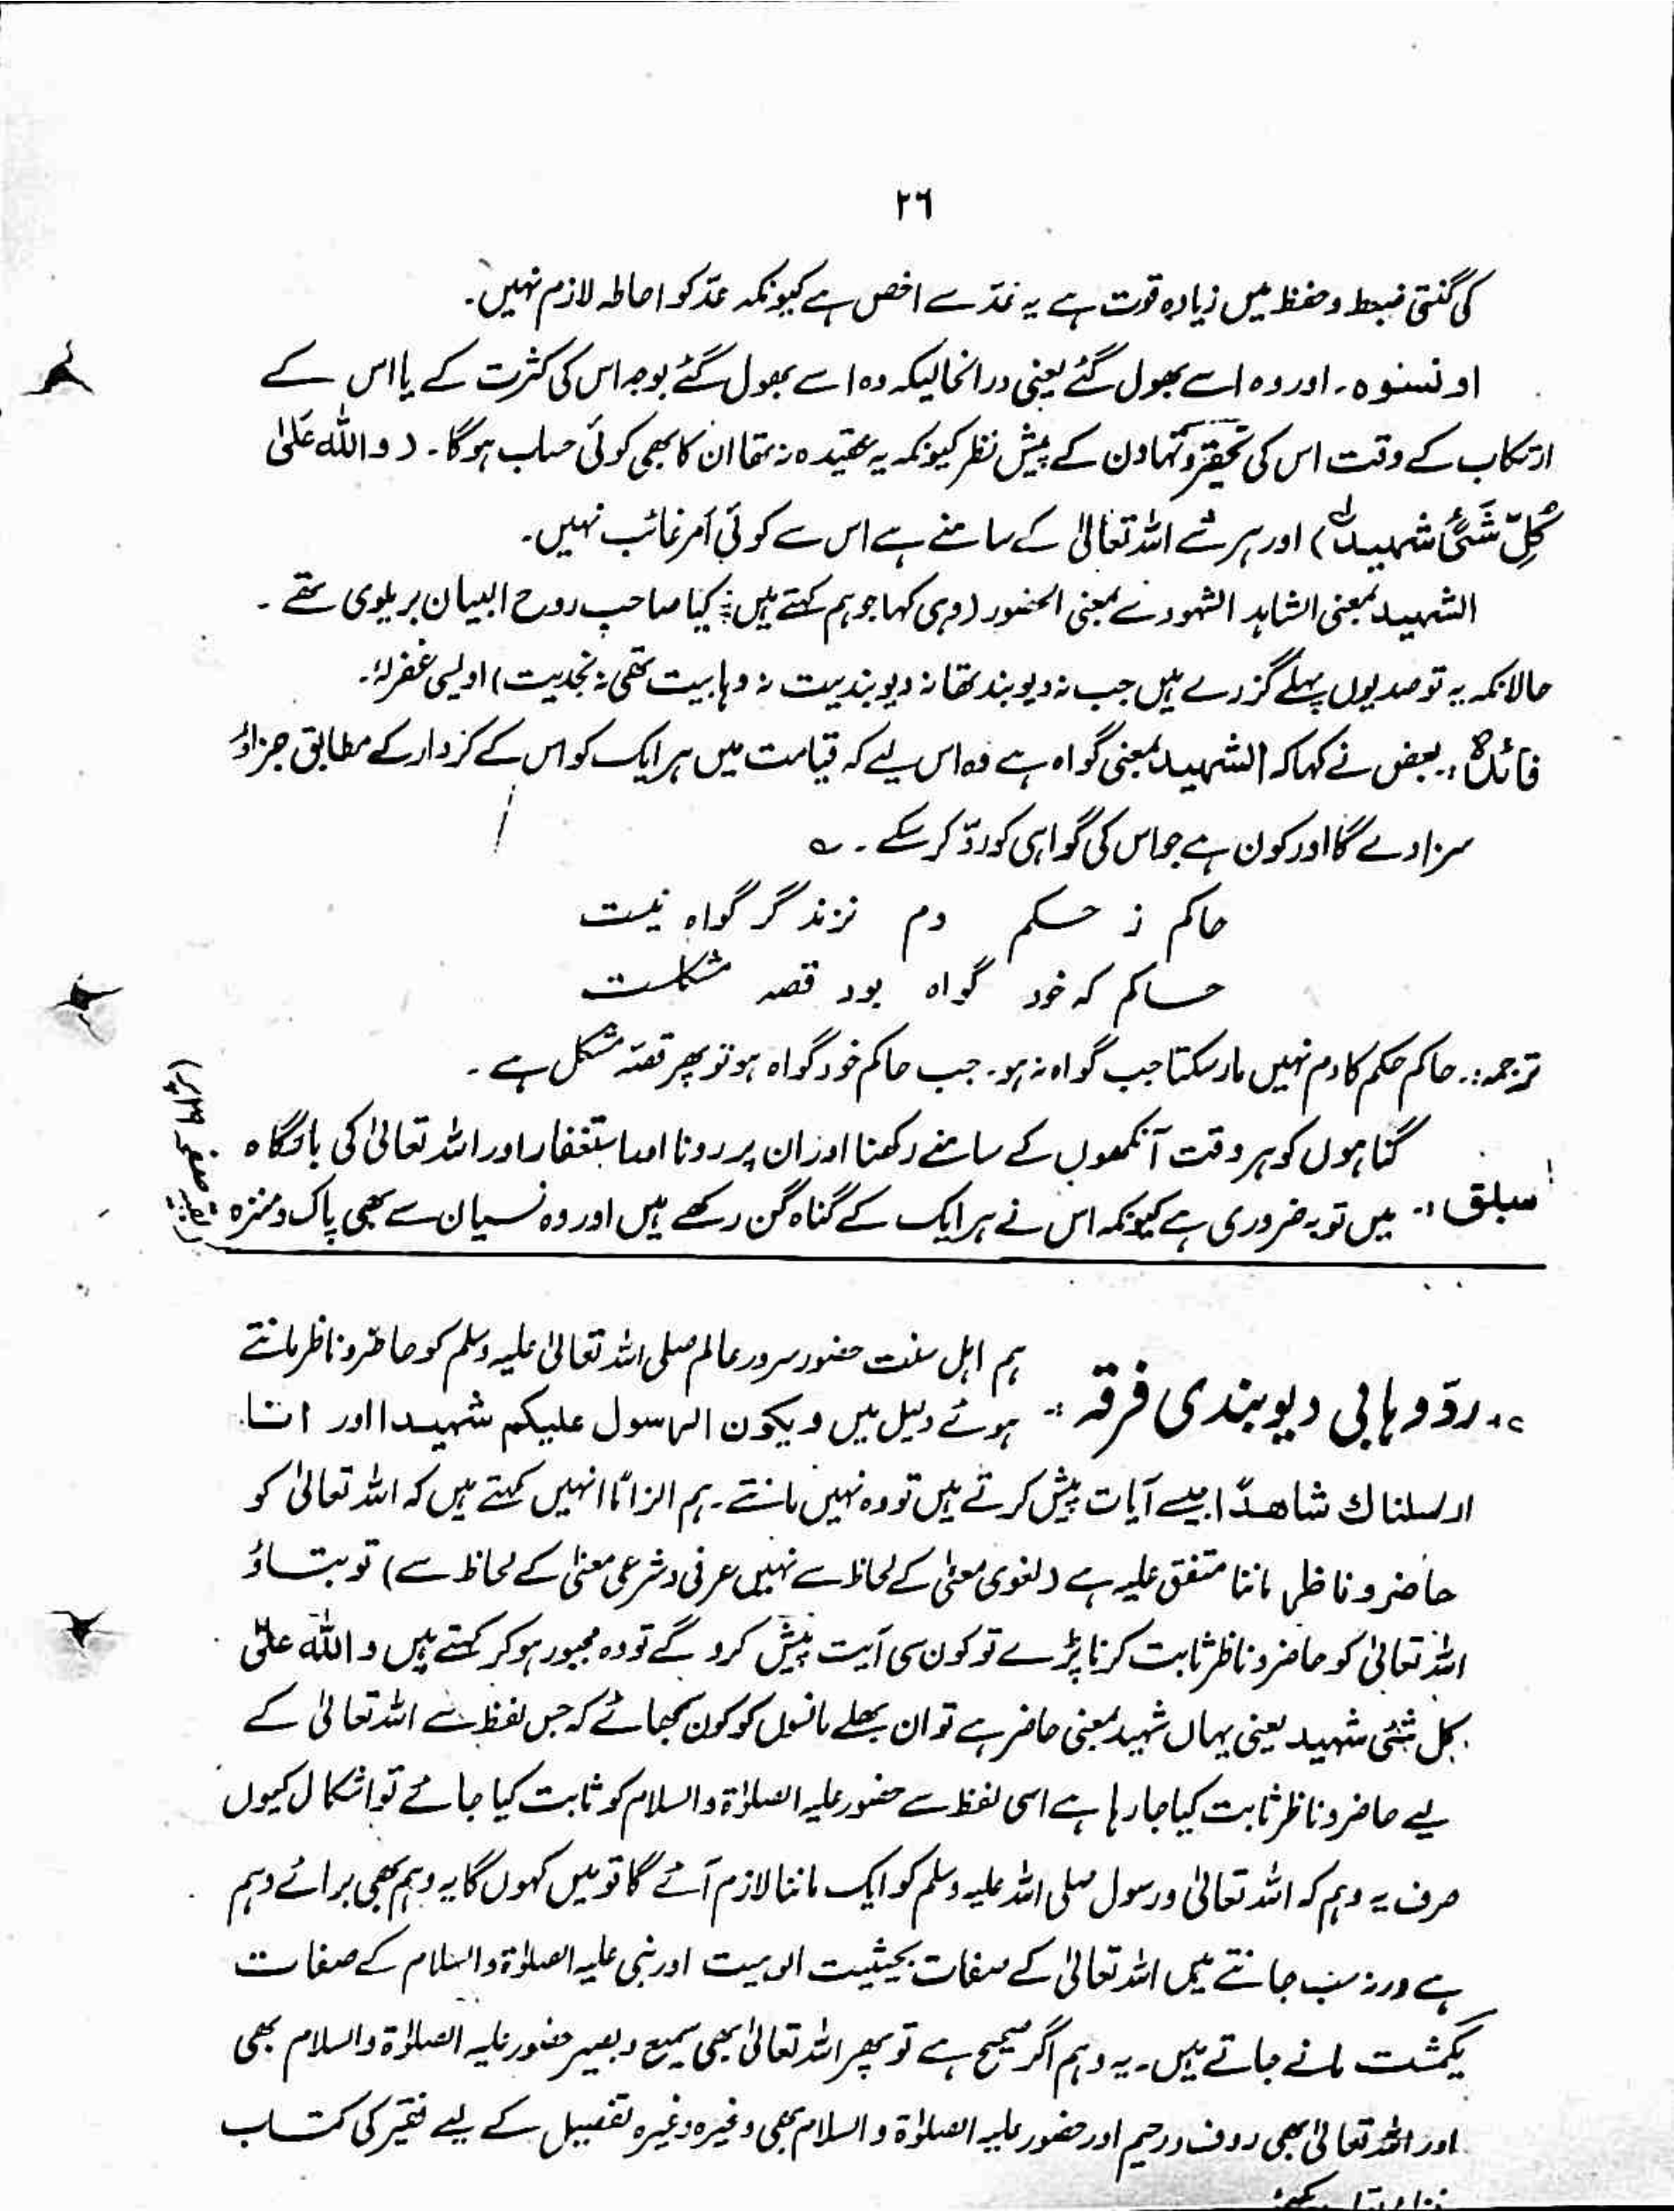 ۲۶
کی گنتی ضبط و حفظ میں زیادہ قوت ہے یہ عَدّ سے اخص ہے کیونکہ عَدّ کو احاطہ لازم نہیں۔
او نسوہ۔ اور وہ اسے بھول گئے یعنی درانحالیکہ وہ اسے بھول گئے بوجہ اس کی کثرت کے یا اس کے
ارتکاب کے وقت اس کی تحقیر و تہاون کے پیش نظر کیونکہ یہ عقیدہ نہ تھا ان کا بھی کوئی حساب ہوگا۔ (واللہ علیٰ
کُلِّ شَیْءٍ شہیدٌ) اور ہر شے اللہ تعالیٰ کے سامنے ہے اس سے کوئی اَمر غائب نہیں۔
الشہید بمعنی الشاہد الشہود نے بمعنی الحضور (وہی کہا جو ہم کہتے ہیں؛ کیا صاحب روح البیان بریلوی تھے۔
حالانکہ یہ تو صدیوں پہلے گزرے ہیں جب نہ دیوبند تھا نہ دیوبندیت نہ وہابیت تھی نہ نجدیت) اویسی غفرلہٗ۔
فائدہ :۔ بعض نے کہا کہ الشہید بمعنی گواہ ہے وہ اس لیے کہ قیامت میں ہر ایک کو اس کے کردار کے مطابق جزاؤ
سزا دے گا اور کون ہے جو اس کی گواہی کو ردّ کر سکے۔ ؎
حاکم ز حکم دم نزند گر گواہ نیست
حاکم کہ خود گواہ بود قصہ مشکلست
ترجمہ :۔ حاکم حکم کا دم نہیں مار سکتا جب گواہ نہ ہو۔ جب حاکم خود گواہ ہو تو پھر قصّہ مشکل ہے۔
گناہوں کو ہر وقت آنکھوں کے سامنے رکھنا اور ان پر رونا اور استغفار اور اللہ تعالیٰ کی بارگاہ
سبق :۔ میں توبہ ضروری ہے کیونکہ اس نے ہر ایک کے گناہ گن رکھے ہیں اور وہ نسیان سے بھی پاک و منزہ
(بقیہ صفحہ ۲۹ پر)
ہم اہل سنت حضور سرور عالم صلی اللہ تعالیٰ علیہ وسلم کو حاضر و ناظر مانتے
ردّ وہابی دیوبندی فرقہ :۔ ہوئے دلیل میں ویکون الرسول علیکم شہیدا اور انا
ارسلناك شاھدًا جیسے آیات پیش کرتے ہیں تو وہ نہیں مانتے۔ ہم الزاماً انہیں کہتے ہیں کہ اللہ تعالیٰ کو
حاضر و ناظر ماننا متفق علیہ ہے (لغوی معنیٰ کے لحاظ سے نہیں عرفی و شرعی معنیٰ کے لحاظ سے) تو بتاؤ
اللہ تعالیٰ کو حاضر و ناظر ثابت کرنا پڑے تو کون سی آیت پیش کرو گے تو وہ مجبور ہو کر کہتے ہیں واللہ علیٰ
کل شیٔ شہید یعنی یہاں شہید بمعنی حاضر ہے تو ان بھلے مانسوں کو کون سمجھائے کہ جس لفظ سے اللہ تعالیٰ کے
لیے حاضر و ناظر ثابت کیا جا رہا ہے اسی لفظ سے حضور علیہ الصلوٰۃ والسلام کو ثابت کیا جائے تو اشکال کیوں
صرف یہ وہم کہ اللہ تعالیٰ و رسول صلی اللہ علیہ وسلم کو ایک ماننا لازم آئے گا تو میں کہوں گا یہ وہم بھی برائے وہم
ہے ورنہ سب جانتے ہیں اللہ تعالیٰ کے صفات بحیثیت الوہیت اور نبی علیہ الصلوٰۃ والسلام کے صفات
یکمشت مانے جاتے ہیں۔ یہ وہم اگر صحیح ہے تو پھر اللہ تعالیٰ بھی سمیع و بصیر حضور علیہ الصلوٰۃ والسلام بھی
اور اللہ تعالیٰ بھی رؤف و رحیم اور حضور علیہ الصلوٰۃ والسلام بھی وغیرہ وغیرہ تفصیل کے لیے فقیر کی کتاب